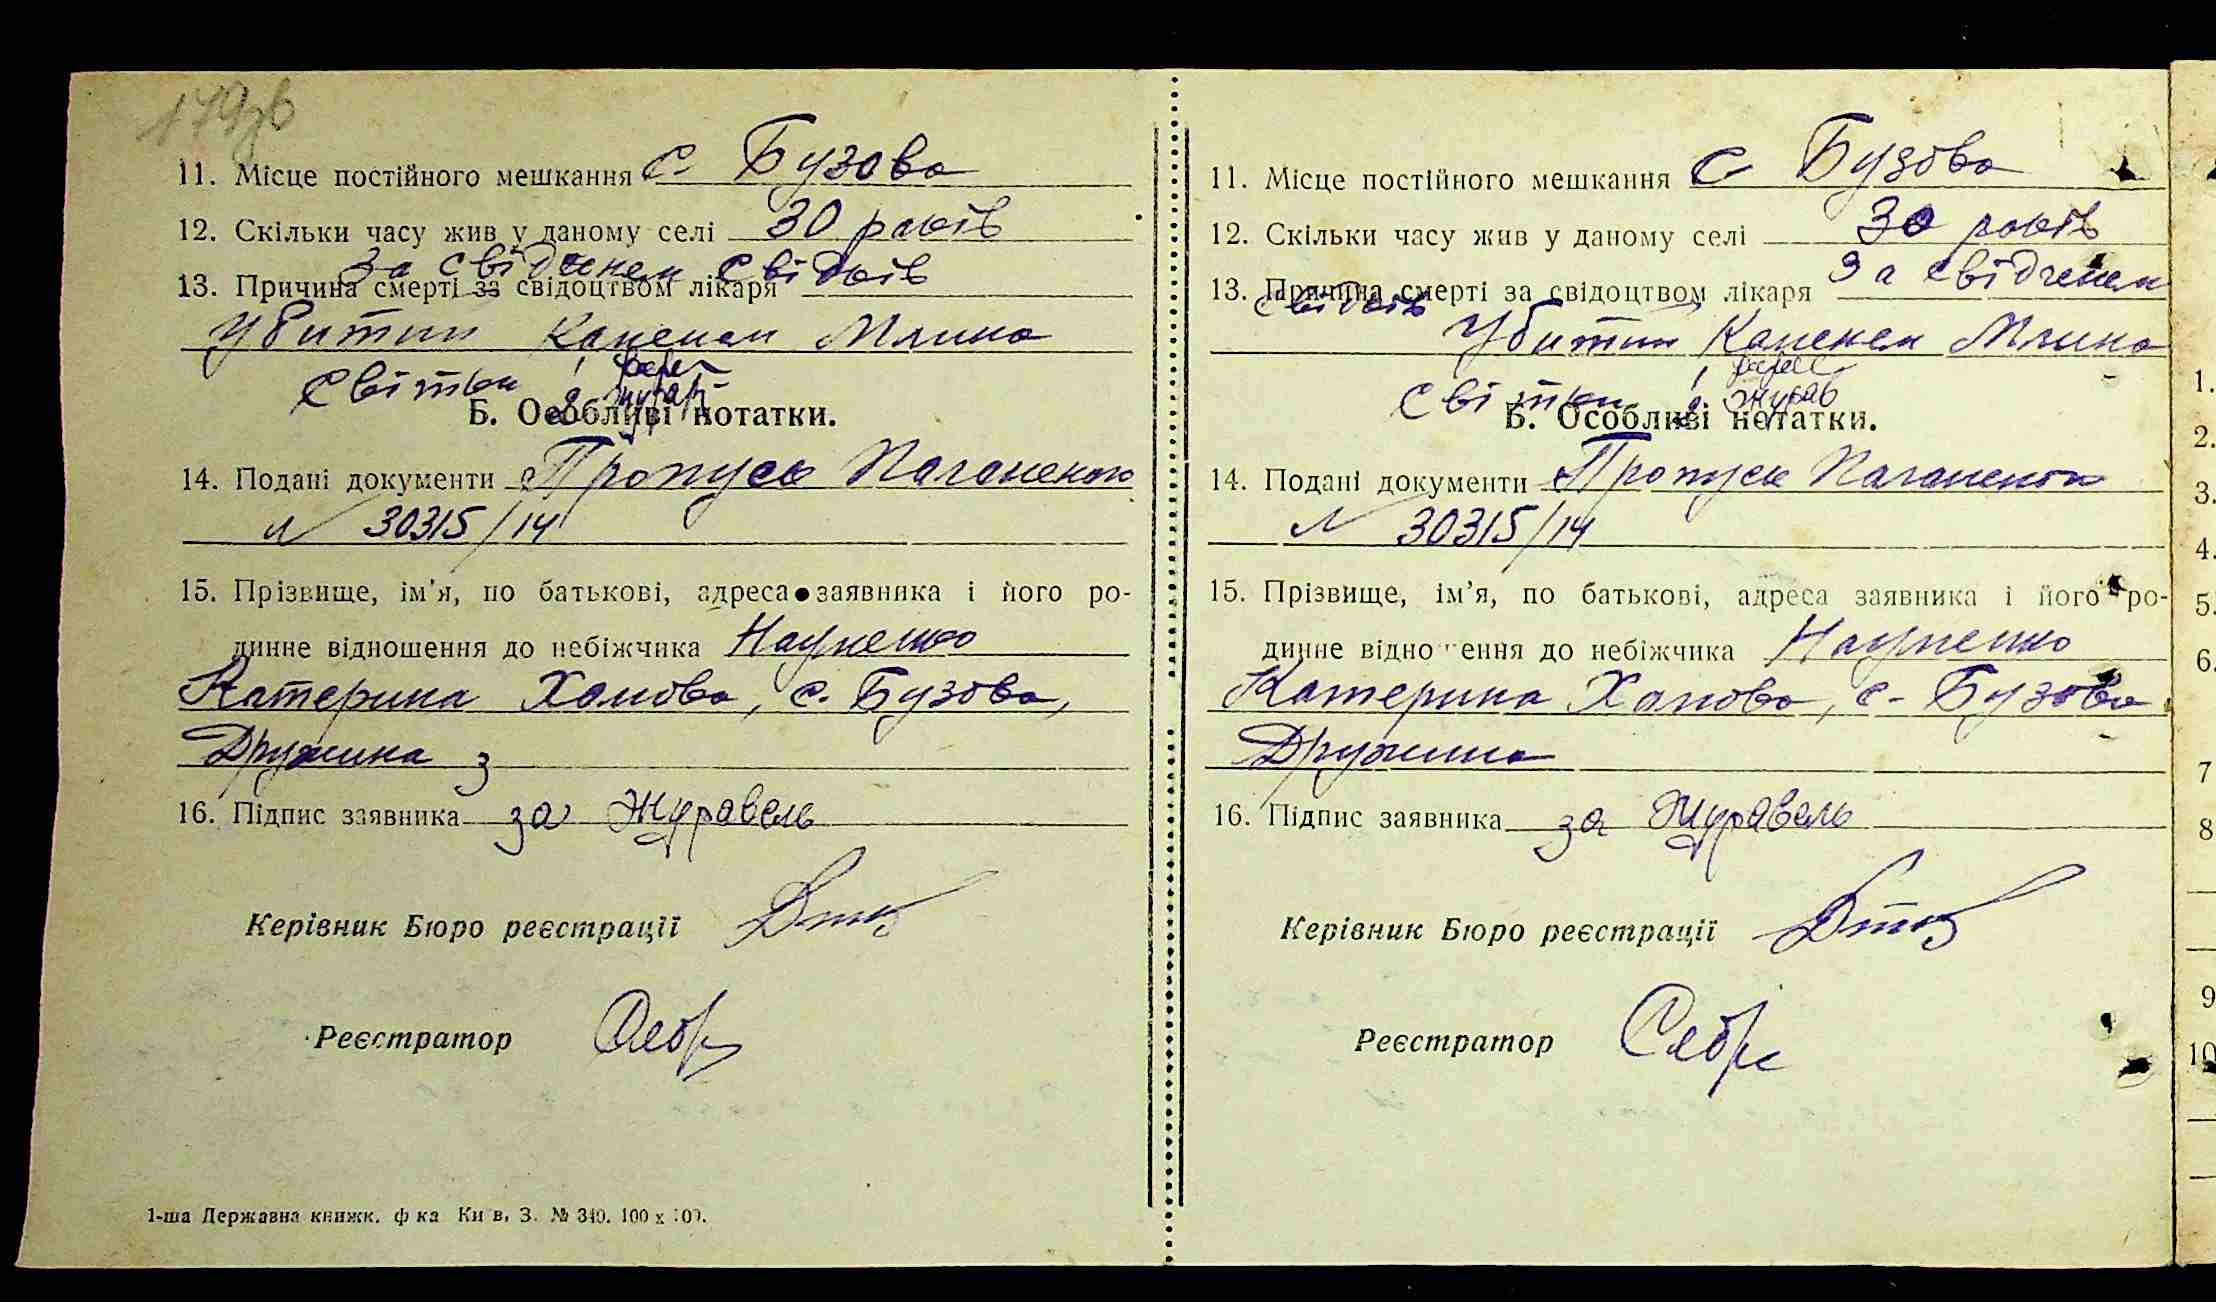 179зв
11. Місце постійного мешкання с. Бузова
12. Скільки часу жив у даному селі 30 років
за свідченем свідків
13. Причина смерті за свідоцтвом лікаря
Убитий Каменем Млина
Свідки 1
2 Журав
Б. Особливі нотатки.
14. Подані документи Пропуск
№ 30315/14
15. Прізвище, ім'я, по батькові, адреса заявника і його ро-
динне відношення до небіжчика Науменко
Катерина Хомова, с. Бузова,
Дружина з
16. Підпис заявника за Журавель
Керівник Бюро реєстрації
Реєстратор
1-ша Державна книжк. ф ка Ки в, З. № 340. 100 х 100.
11. Місце постійного мешкання с. Бузова
12. Скільки часу жив у даному селі 30 років
За свідченем
13. Причина смерті за свідоцтвом лікаря
свідків
Убитий Каменем Млина
Свідки 1
2 Журав
Б. Особливі нотатки.
14. Подані документи Пропуск
№ 30315/14
15. Прізвище, ім'я, по батькові, адреса заявника і його ро-
динне відно ення до небіжчика Науменко
Катерина Хомова, с. Бузова
Дружина
16. Підпис заявника за Журавель
Керівник Бюро реєстрації
Реєстратор
1.
2.
3.
4.
5.
6.
7
8
9
10